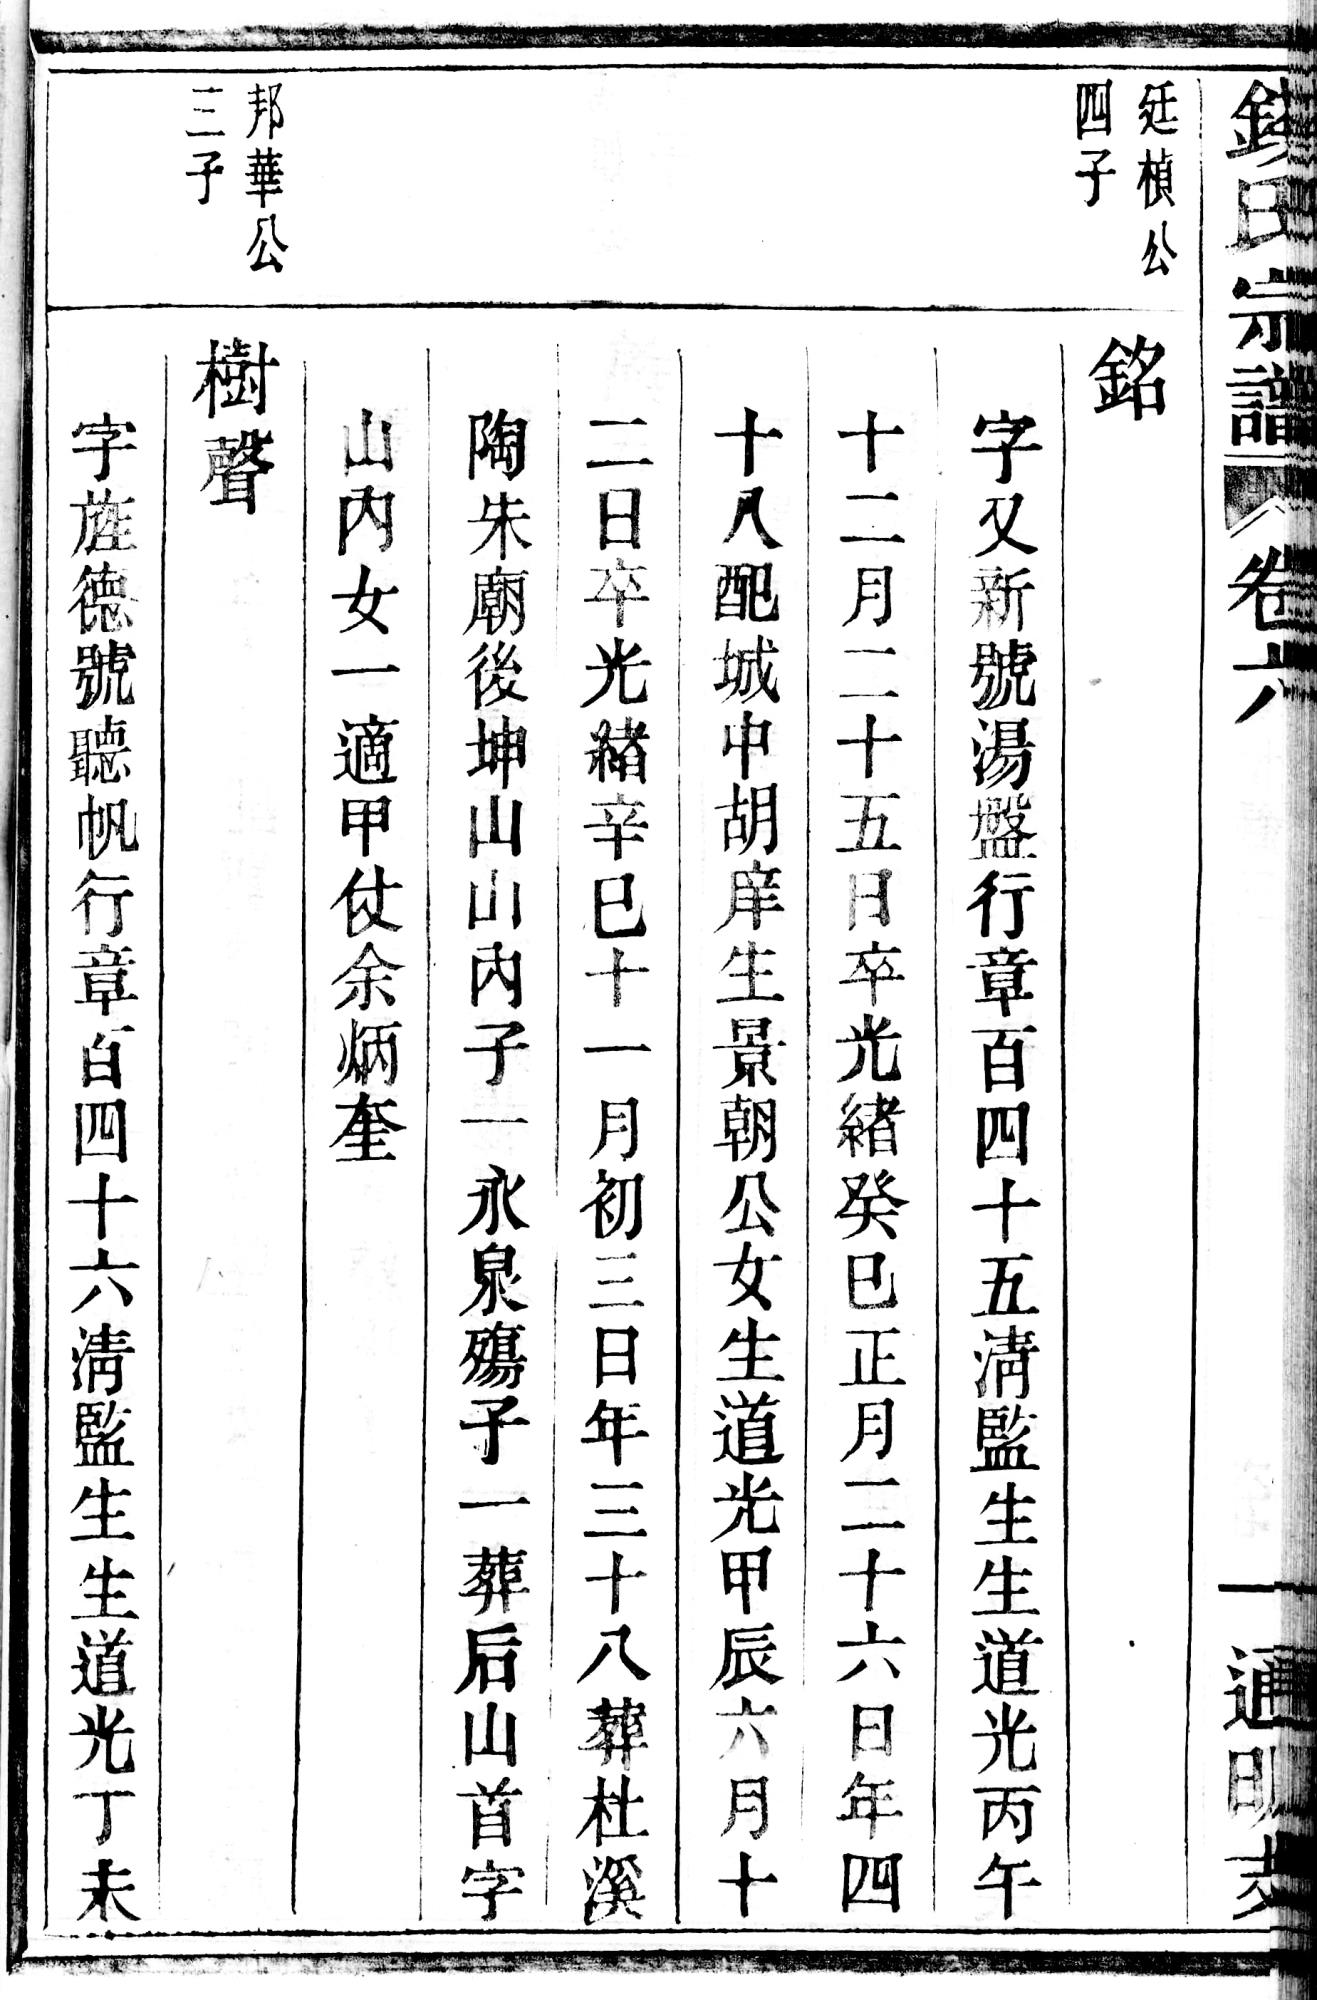 錢氏宗譜 卷六 一 通明支
廷楨公
四子
銘
字又新號湯盤行章百四十五淸監生生道光丙午
十二月二十五日卒光緖癸巳正月二十六日年四
十八配城中胡庠生景朝公女生道光甲辰六月十
二日卒光緖辛巳十一月初三日年三十八葬杜溪
陶朱廟後坤山山內子一永泉殤子一葬后山首字
山內女一適甲仗余炳奎
邦華公
三子
樹聲
字旌德號聽帆行章百四十六淸監生生道光丁未